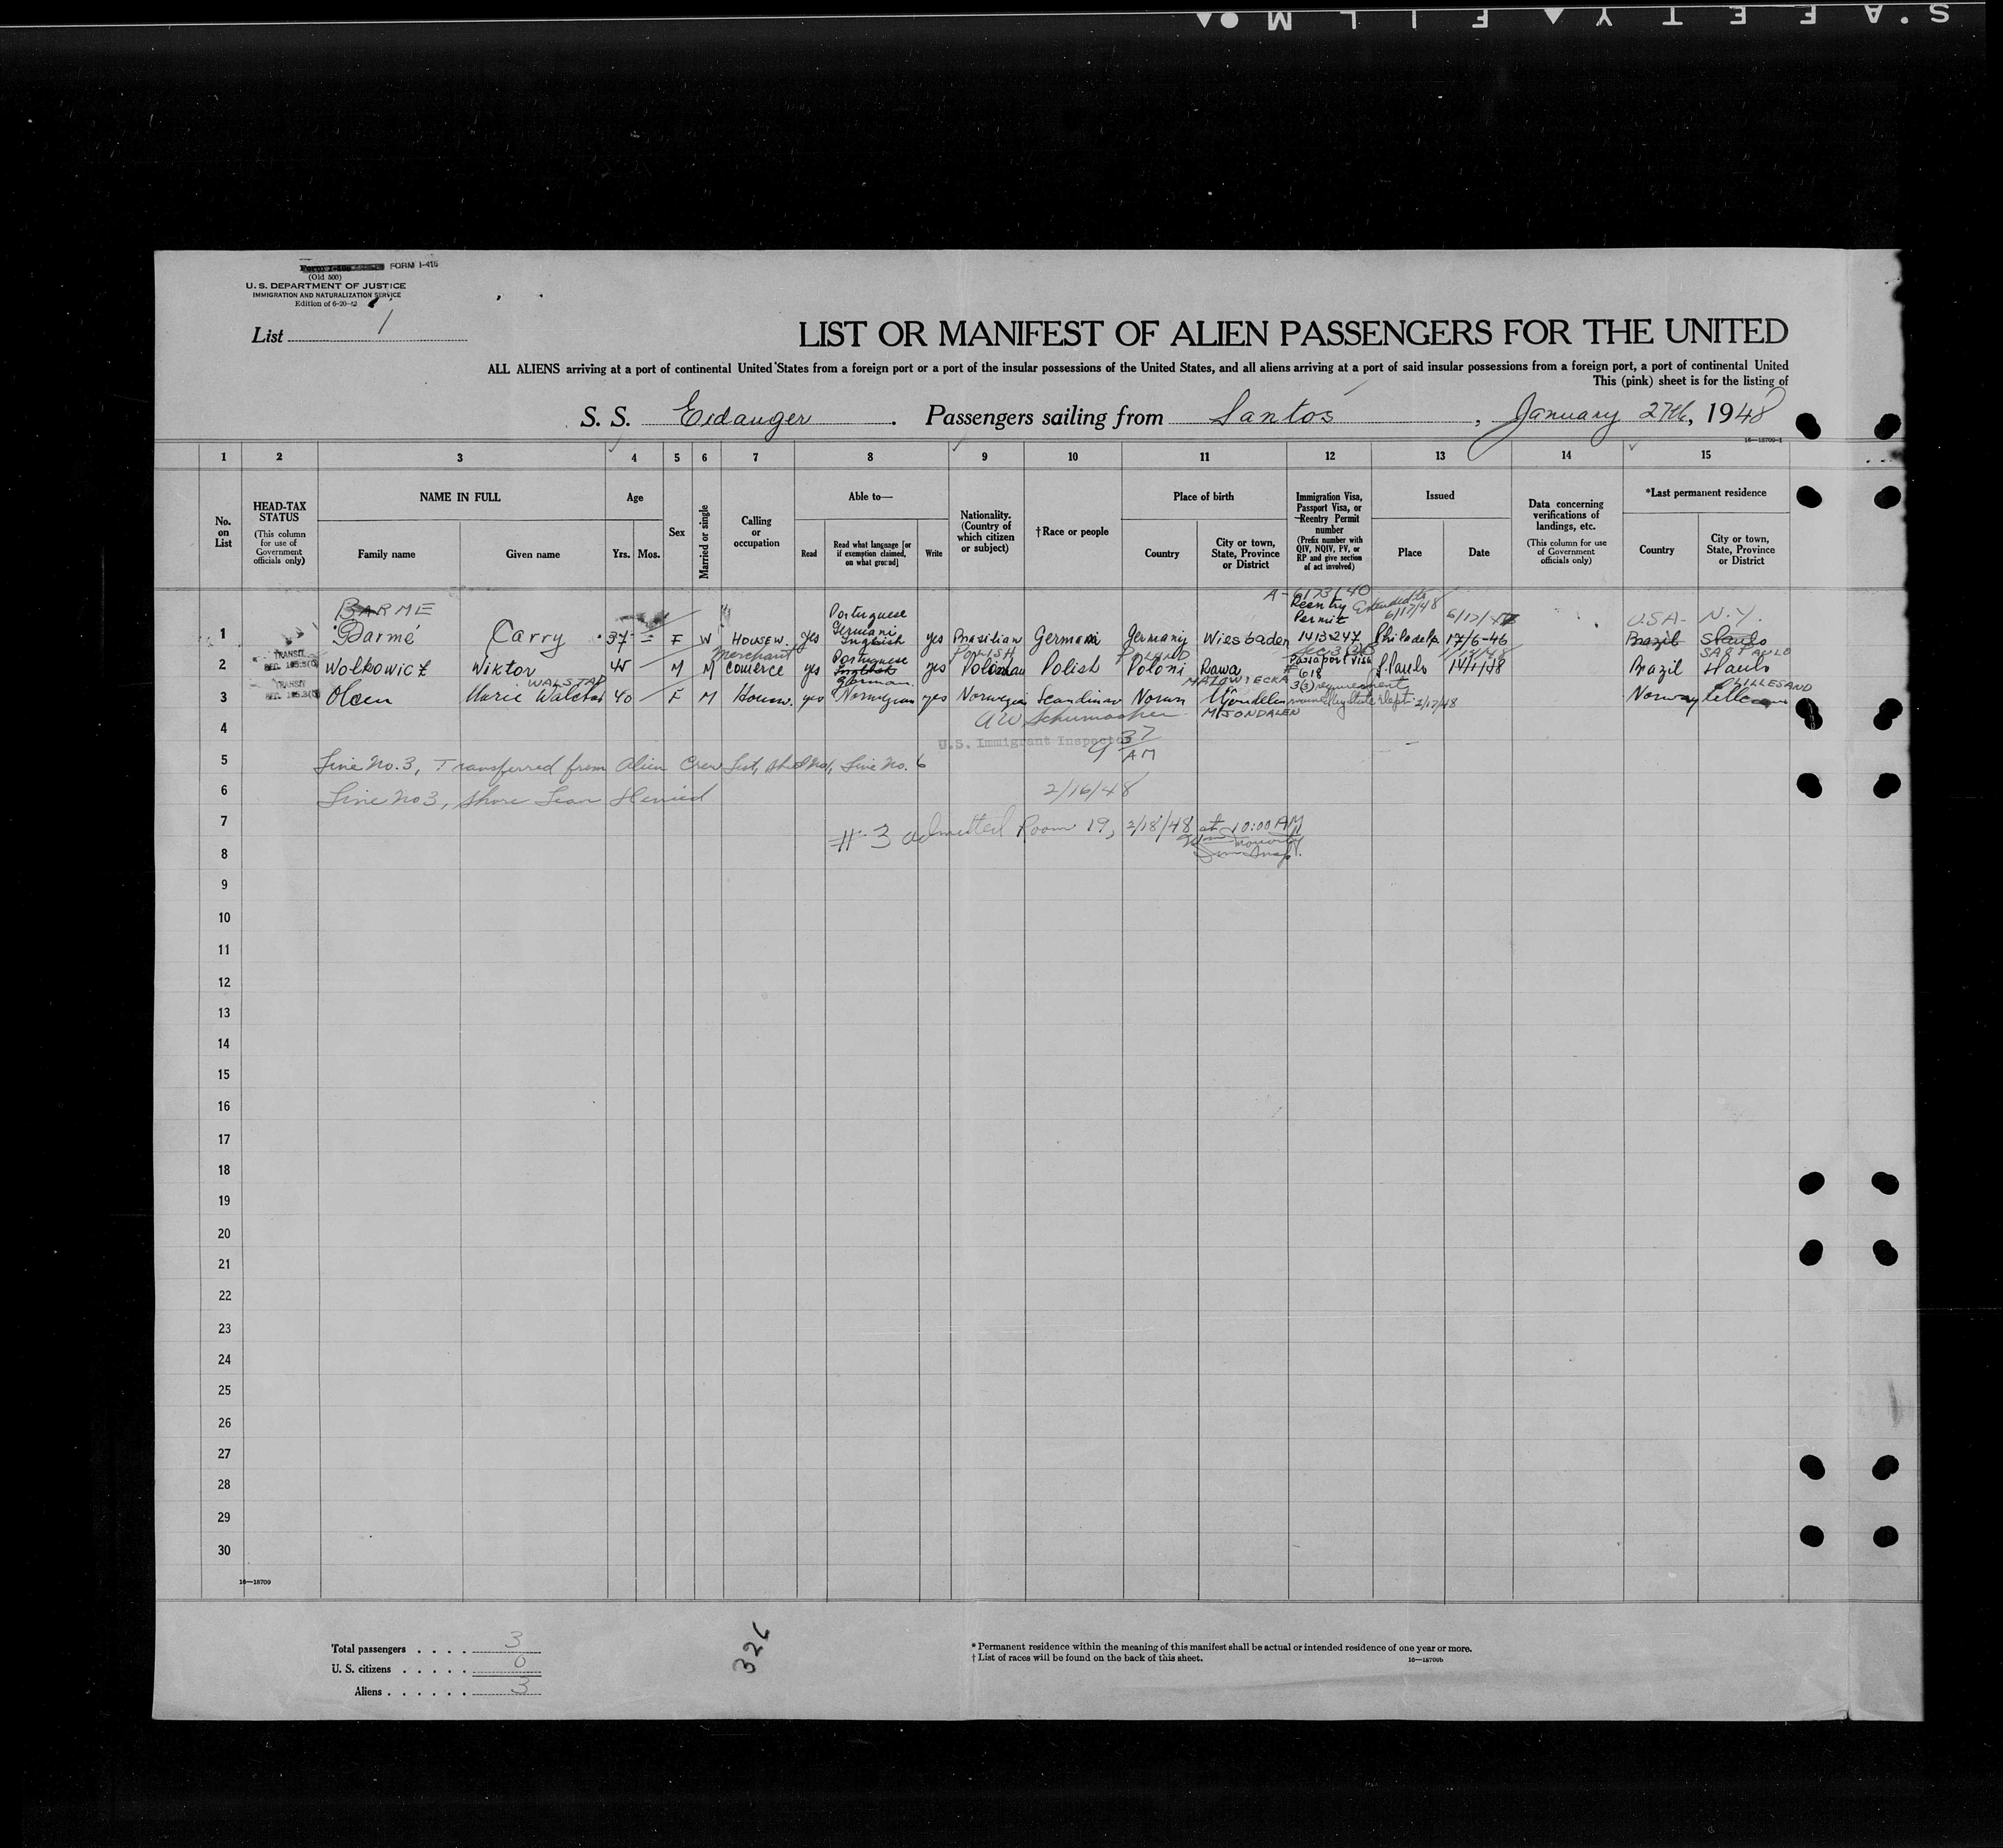 SAFETY FILM
Form I-408 FORM I-415
(Old 500)
U. S. DEPARTMENT OF JUSTICE
IMMIGRATION AND NATURALIZATION SERVICE
Edition of 6-20-42
List 1
LIST OR MANIFEST OF ALIEN PASSENGERS FOR THE UNITED
ALL ALIENS arriving at a port of continental United States from a foreign port or a port of the insular possessions of the United States, and all aliens arriving at a port of said insular possessions from a foreign port, a port of continental United
This (pink) sheet is for the listing of
S. S. Eidanger. Passengers sailing from Santos, January 27th, 1948
16—18709-1
1 2 3 4 5 6 7 8 9 10 11 12 13 14 15
No. on List
HEAD-TAX STATUS
(This column for use of Government officials only)
NAME IN FULL
Family name
Given name
Age
Yrs.
Mos.
Sex
Married or single
Calling or occupation
Able to—
Read
Read what language [or if exemption claimed, on what ground]
Write
Nationality. (Country of which citizen or subject)
†Race or people
Place of birth
Country
City or town, State, Province or District
Immigration Visa, Passport Visa, or Reentry Permit number
(Prefix number with QIV, NQIV, PV, or RP and give section of act involved)
Issued
Place
Date
Data concerning verifications of landings, etc.
(This column for use of Government officials only)
*Last permanent residence
Country
City or town, State, Province or District
A-6173140
BARME Portuguese Reentry Extended to 6/17/48 6/17/47 USA- N.Y.
Permit
1 Barmé Carry 37 F W HOUSEW. yes Germani English yes Brasilian German Germany Wiesbaden 1413247 Philadelp. 17/6-46 Brazil S Paulo
TRANSIT merchant Portuguese POLISH POLAND Sec 3(3) SAO PAULO
2 Wolkowicz Wiktor 45 M M Comerce yes English German yes Polonian Polish Poloni Rawa Passaport Visa 618 S. Paulo 14/1/48 Brazil S Paulo
TRANSIT WALSTAD MAZOWIECKA 3(3) requirements LILLESAND
3 Olsen Marie Walstad 40 F M Housw. yes Norwegian yes Norwegia Scandinav Norwa Mjondelen State Dept 2/17/48 Norway
MJONDALEN
4 A W Schumacher
U.S. Immigrant Inspector
9 37 AM
5 Line No. 3, Transferred from Alien Crew List, Line No. 6
6 Line No 3, Shore Leave Denied 2/16/48
7 # 3 admitted Room 19, 2/18/48 at 10:00 AM
8
9
10
11
12
13
14
15
16
17
18
19
20
21
22
23
24
25
26
27
28
29
30
16—18709
Total passengers . . . . 3
U. S. citizens . . . . . 0
Aliens . . . . . . 3
326
* Permanent residence within the meaning of this manifest shall be actual or intended residence of one year or more.
† List of races will be found on the back of this sheet.
16—18709b